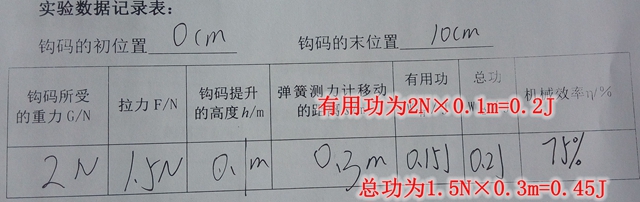 实验数据记录表:
钩码的初位置 0cm 钩码的末位置 10cm
钩码所受的重力G/N 拉力F/N 钩码提升的高度h/m 弹簧测力计移动的 有用功 总功 机械效率η/%
有用功为2N×0.1m=0.2J
2N 1.5N 0.1m 0.3m 0.15J 0.2J 75%
总功为1.5N×0.3m=0.45J